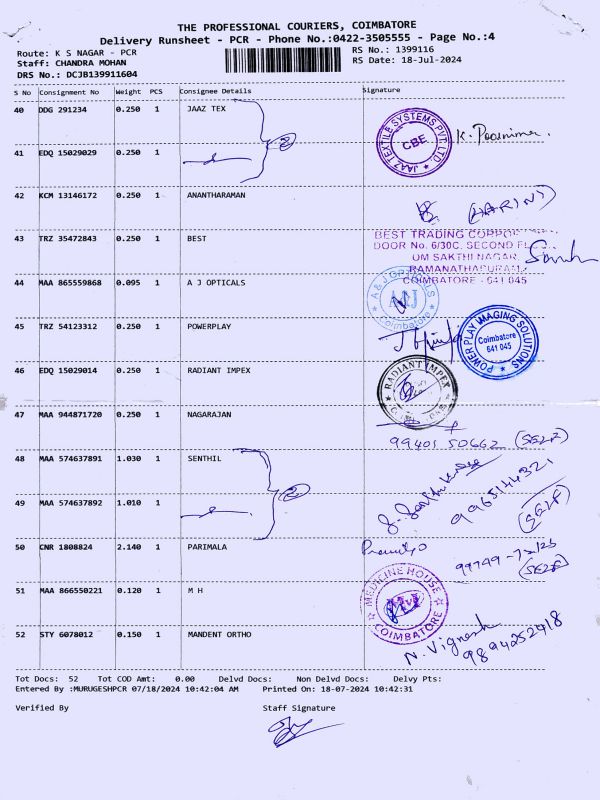 THE PROFESSIONAL COURIERS, COIMBATORE
Delivery Runsheet - PCR - Phone No.:0422-3505555 - Page No.:4
Route: K S NAGAR - PCR
RS No.: 1399116
Staff: CHANDRA MOHAN
RS Date: 18-Jul-2024
DRS No.: DCJB139911604
S No Consignment No Weight PCS Consignee Details Signature
40 DDG 291234 0.250 1 JAAZ TEX
JAAZ TEXTILE SYSTEMS PVT. LTD
CBE
41 EDQ 15029029 0.250 1
2
42 KCM 13146172 0.250 1 ANANTHARAMAN
(HARINI)
43 TRZ 35472843 0.250 1 BEST
BEST TRADING
DOOR No. 6/30C, SECOND
OM SAKTHI NAGAR,
RAMANATHAPURAM,
COIMBATORE - 641 045
44 MAA 865559868 0.095 1 A J OPTICALS
A & J OPTICALS
Coimbatore
45 TRZ 54123312 0.250 1 POWERPLAY
POWER PLAY IMAGING SOLUTIONS
Coimbatore
641 045
46 EDQ 15029014 0.250 1 RADIANT IMPEX
RADIANT IMPEX
47 MAA 944871720 0.250 1 NAGARAJAN
99401 50662 (SELF)
48 MAA 574637891 1.030 1 SENTHIL
9965144321
(SELF)
49 MAA 574637892 1.010 1
2
50 CNR 1808824 2.140 1 PARIMALA
(SELF)
51 MAA 866550221 0.120 1 M H
MEDICINE HOUSE
COIMBATORE
52 STY 6078012 0.150 1 MANDENT ORTHO
N. Vignesh
9894252418
Tot Docs: 52 Tot COD Amt: 0.00 Delvd Docs: Non Delvd Docs: Delvy Pts:
Entered By :MURUGESHPCR 07/18/2024 10:42:04 AM Printed On: 18-07-2024 10:42:31
Verified By Staff Signature